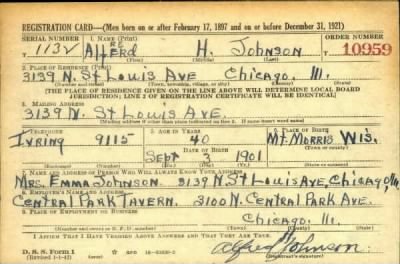 REGISTRATION CARD—(Men born on or after February 17, 1897 and on or before December 31, 1921)
SERIAL NUMBER 1. NAME (Print) ORDER NUMBER
1132 Alfred H. Johnson 10959
(First) (Middle) (Last)
2. PLACE OF RESIDENCE (Print)
3139 N. St Louis Ave Chicago. Ill.
(Number and street) (Town, township, village, or city) (County) (State)
[THE PLACE OF RESIDENCE GIVEN ON THE LINE ABOVE WILL DETERMINE LOCAL BOARD
JURISDICTION; LINE 2 OF REGISTRATION CERTIFICATE WILL BE IDENTICAL]
3. MAILING ADDRESS
3139 N. St Louis Ave.
[Mailing address if other than place indicated on line 2. If same insert word same]
4. TELEPHONE 5. AGE IN YEARS 6. PLACE OF BIRTH
Irving 9115 40 Mt. Morris Wis.
DATE OF BIRTH
Sept 3 1901
(Mo.) (Day) (Yr.)
7. NAME AND ADDRESS OF PERSON WHO WILL ALWAYS KNOW YOUR ADDRESS
Mrs. Emma Johnson. 3139 N. St Louis Ave, Chicago, Ill.
8. EMPLOYER'S NAME AND ADDRESS
Central Park Tavern. 3100 N. Central Park Ave.
9. PLACE OF EMPLOYMENT OR BUSINESS
Chicago. Ill.
(Number and street or R. F. D. number) (Town) (County) (State)
I AFFIRM THAT I HAVE VERIFIED ABOVE ANSWERS AND THAT THEY ARE TRUE.
D. S. S. Form 1
(Revised 1-1-42)
Alfred H Johnson